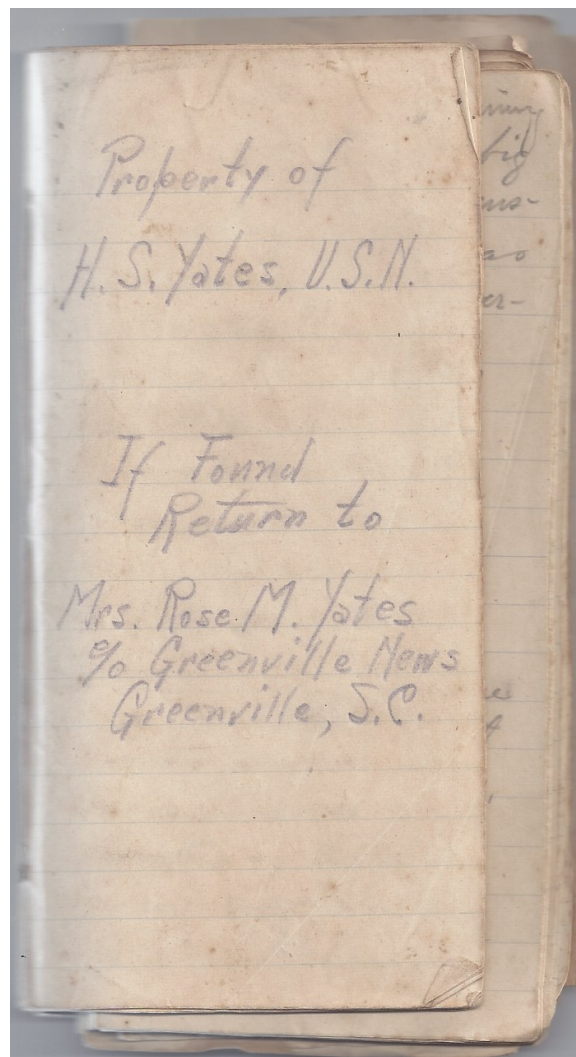 Property of
H.S. Yates, U.S.N.
If Found
Return to
Mrs. Rose M. Yates
% Greenville News
Greenville, S.C.
big